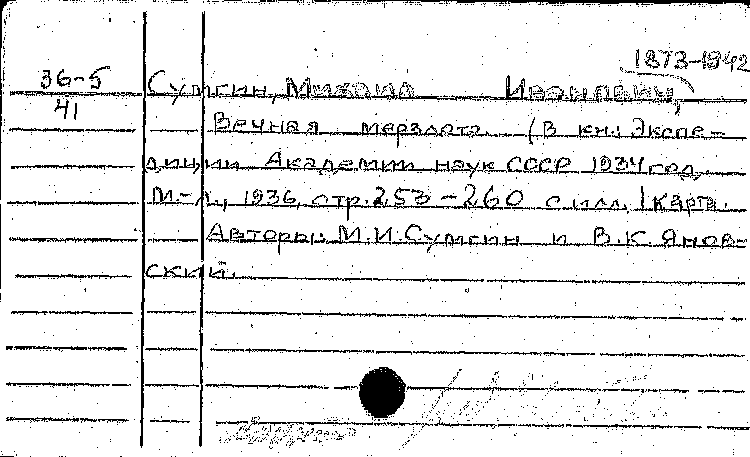 1873-1942
36-5
41
Сумгин, Михаил Иванович,
Вечная мерзлота. (В кн.: Экспе-
диции Академии наук СССР 1934 год,
М.-Л., 1936, стр. 253-260 с илл., 1 карта.
Авторы: М.И. Сумгин и В.К. Янов-
ский.